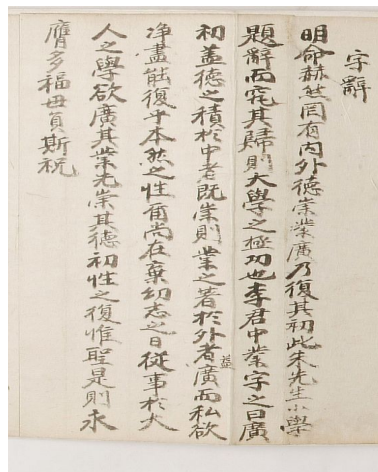 字辭
明命赫然罔有內外德崇業廣乃復其初此朱先生小學
題辭而究其歸則大學之極功也李君中業字之曰廣
初盖德之積於中者旣崇則業之著於外者益廣而私欲
净盡能復乎本然之性爾尚在棄幼志之日從事於大
人之學欲廣其業先崇其德初性之復惟聖是則永
膺多福毋負斯祝